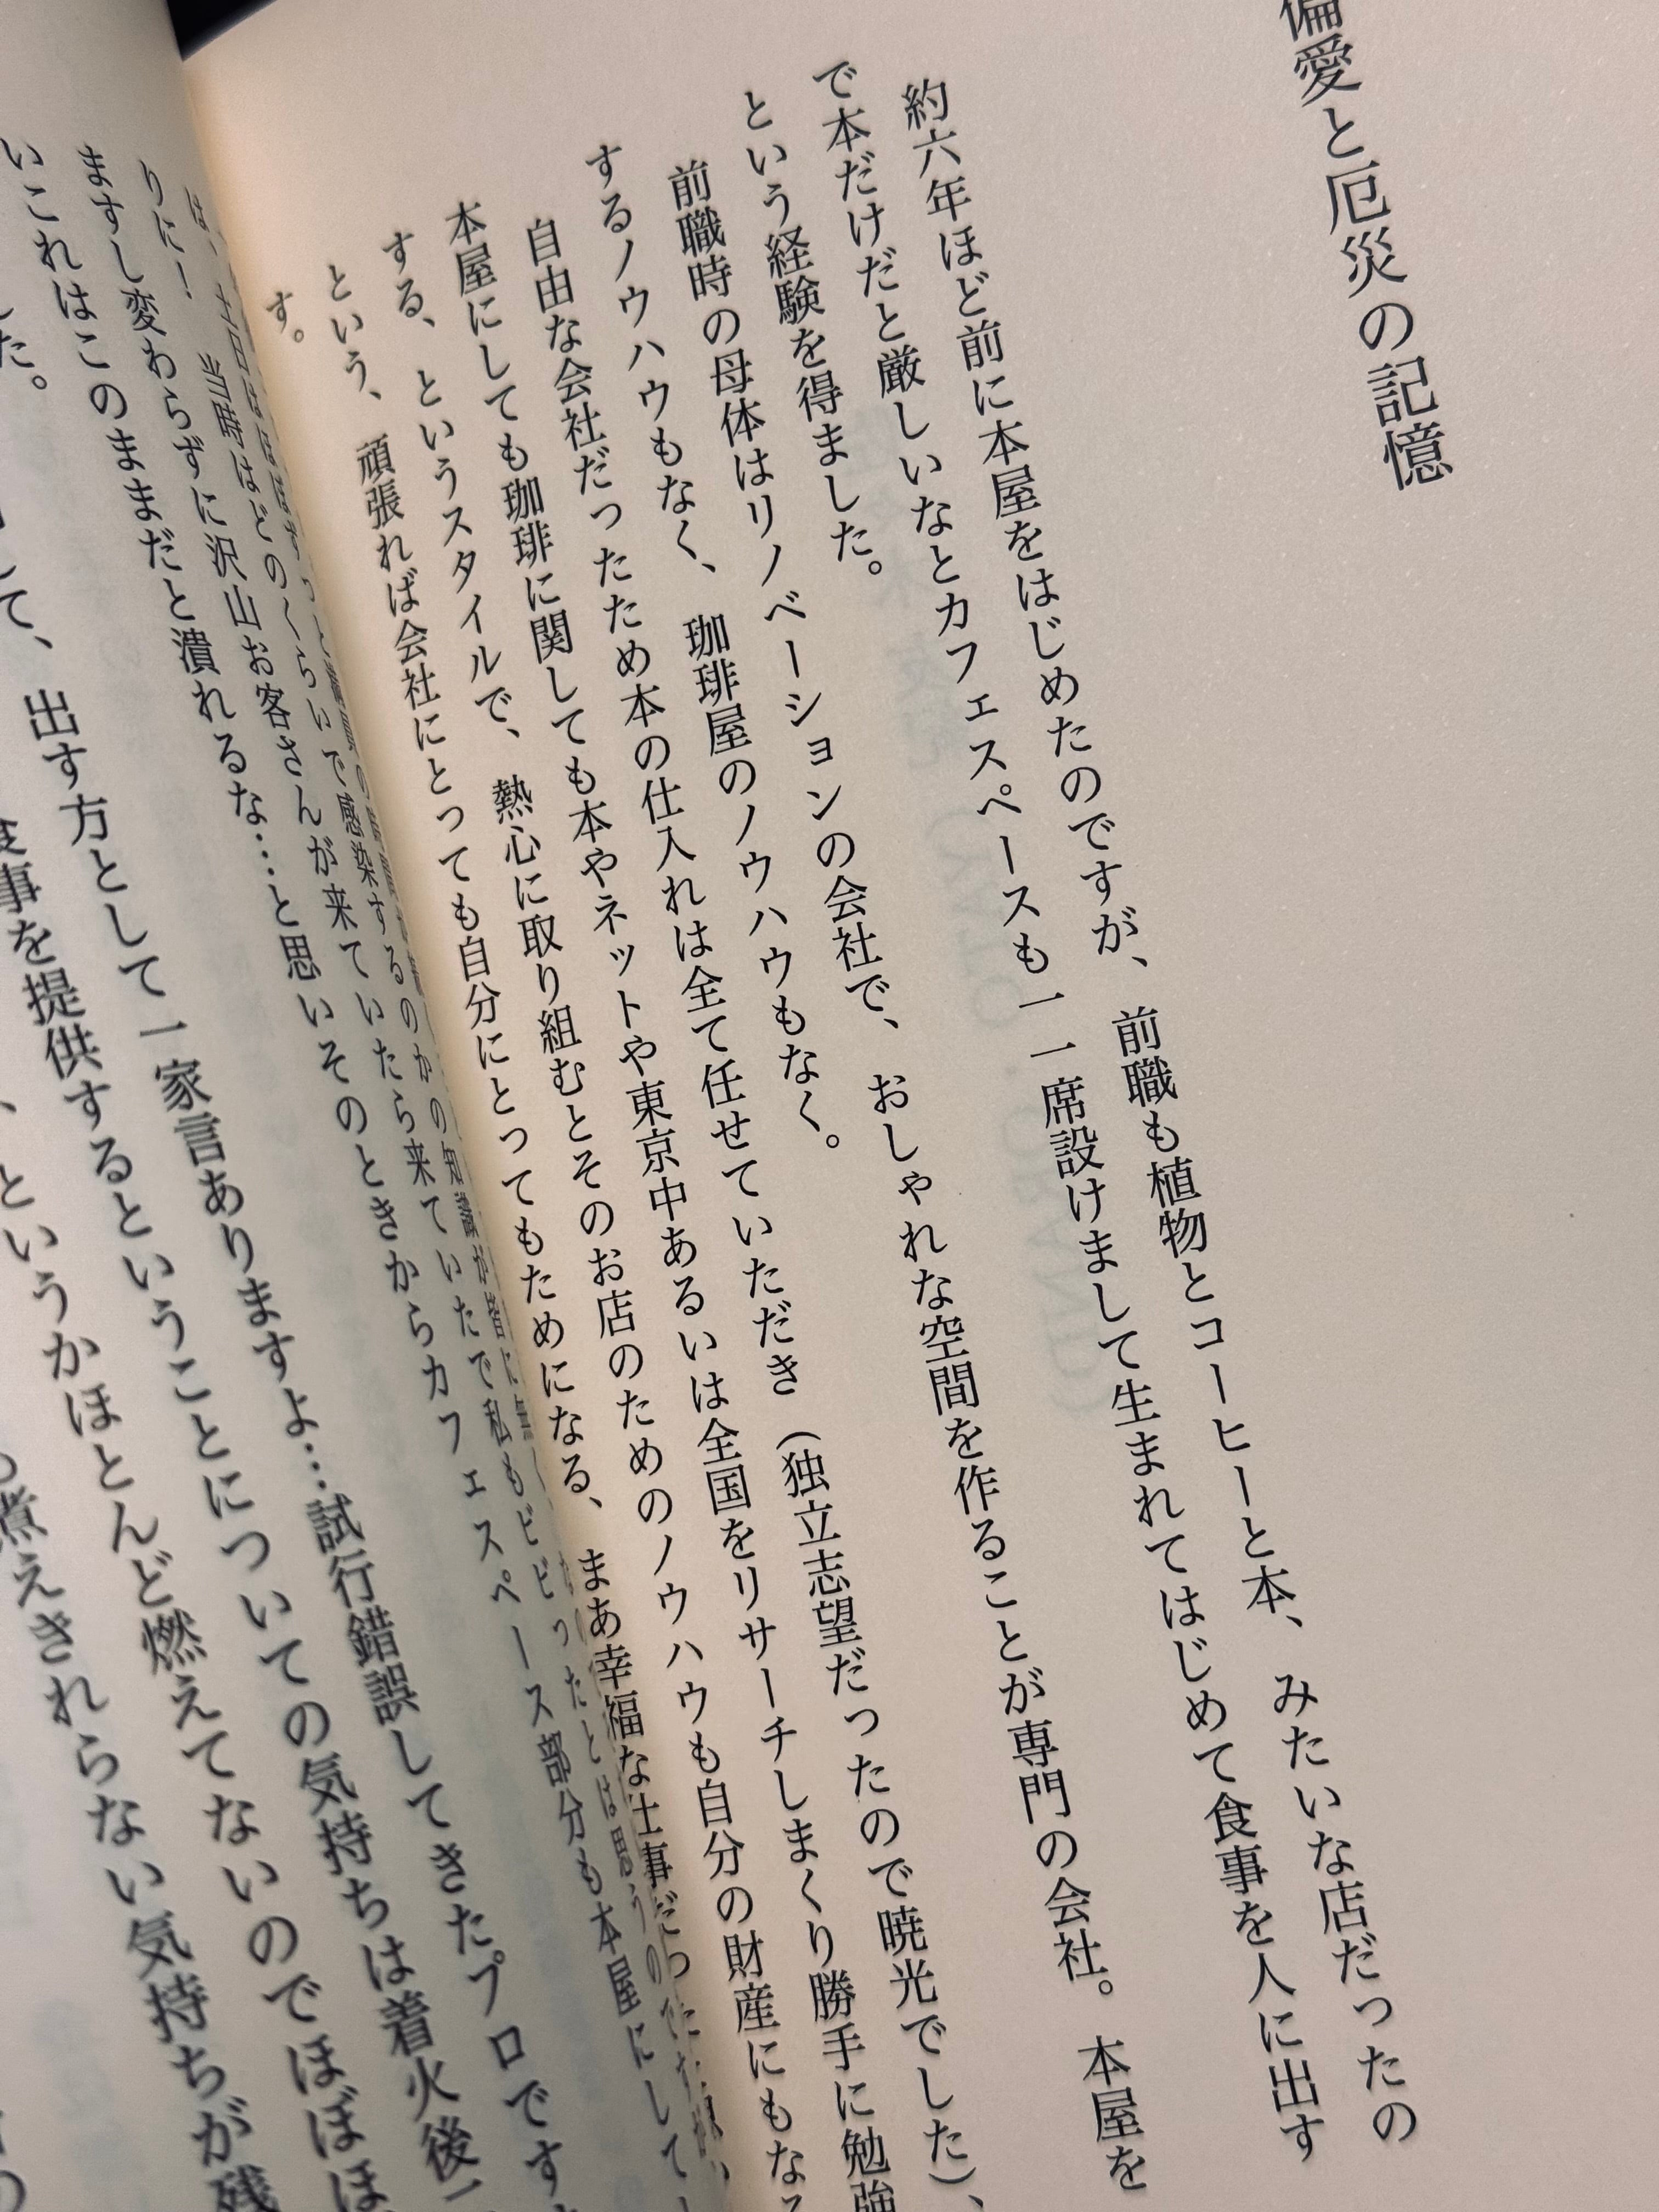 偏愛と厄災の記憶
約六年ほど前に本屋をはじめたのですが、前職も植物とコーヒーと本、みたいな店だったの
で本だけだと厳しいなとカフェスペースも一一席設けまして生まれてはじめて食事を人に出す
という経験を得ました。
前職時の母体はリノベーションの会社で、おしゃれな空間を作ることが専門の会社。本屋を
するノウハウもなく、珈琲屋のノウハウもなく。
自由な会社だったため本の仕入れは全て任せていただき（独立志望だったので暁光でした）、
本屋にしても珈琲に関しても本やネットや東京中あるいは全国をリサーチしまくり勝手に勉強
する、というスタイルで、熱心に取り組むとそのお店のためのノウハウも自分の財産にもなる
という、頑張れば会社にとっても自分にとってもためになる、まあ幸福な仕事だった
す。
当時はどのくらいで感染するのかの知識が皆に無
りに！
沢山お客さんが来ていたら来ていたで私もビビったとは思うのです
ますし変わらずに
いこれはこのままだと潰れるな…と思いそのときからカフェスペース部分も本屋にして
した。
て、出す方として一家言ありますよ…試行錯誤してきたプロです
食事を提供するということについての気持ちは着火後
、というかほとんど燃えてないのでほぼほ
煮えきれらない気持ちが残